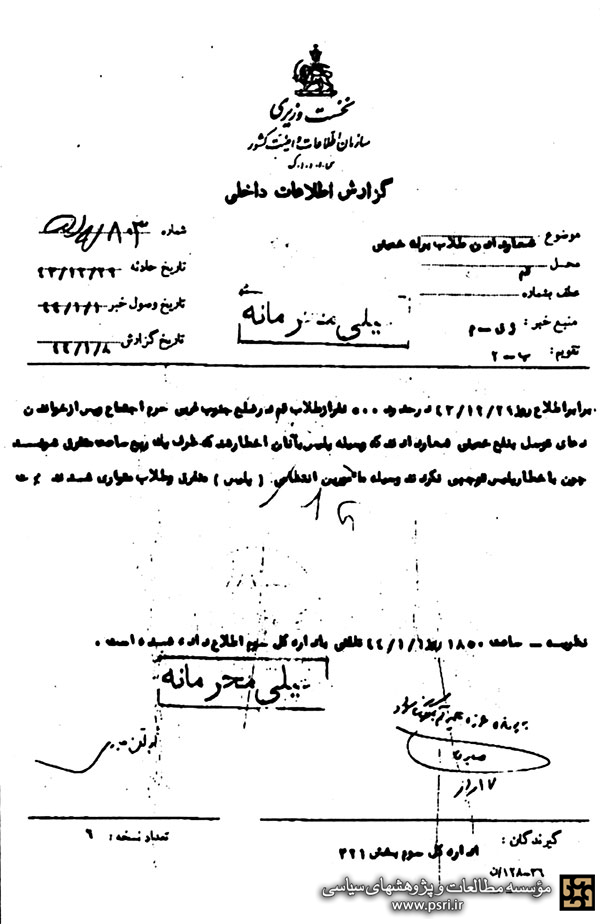 نخست وزیری
سازمان اطلاعات و امنیت کشور
س.ا.و.ا.ک
گزارش اطلاعات داخلی
موضوع شعار دادن طلاب برله خمینی
محل قم
عطف بشماره
منبع خبر:
تقویم: ب-۲
شماره ۸۰۳
تاریخ حادثه ۴۳/۱۲/۲۹
تاریخ وصول خبر ۴۴/۱/۱
تاریخ گزارش ۴۴/۱/۸
خیلی محرمانه
برابر اطلاع روز ۴۳/۱۲/۲۹ در حدود ۵۰۰ نفر از طلاب قم در ضلع جنوب غربی حرم اجتماع و پس از خواندن
دعای توسل بنفع خمینی شعار دادند که وسیله پلیس بآنان اخطار شد که ظرف یک ربع ساعت متفرق شوند
چون باخطار پلیس توجهی نکردند وسیله مامورین انتظامی (پلیس) متفرق و طلاب متواری شدند
نظریه - ساعت ۱۸۵۰ روز ۴۴/۱/۱ تلفنی باداره کل سوم اطلاع داده شده است.
خیلی محرمانه
گیرندگان:
اداره کل سوم بخش ۳۲۱
تعداد نسخه: ۶
۳۶-۱۲۸/ن
مؤسسه مطالعات و پژوهشهای سیاسی
www.psri.ir